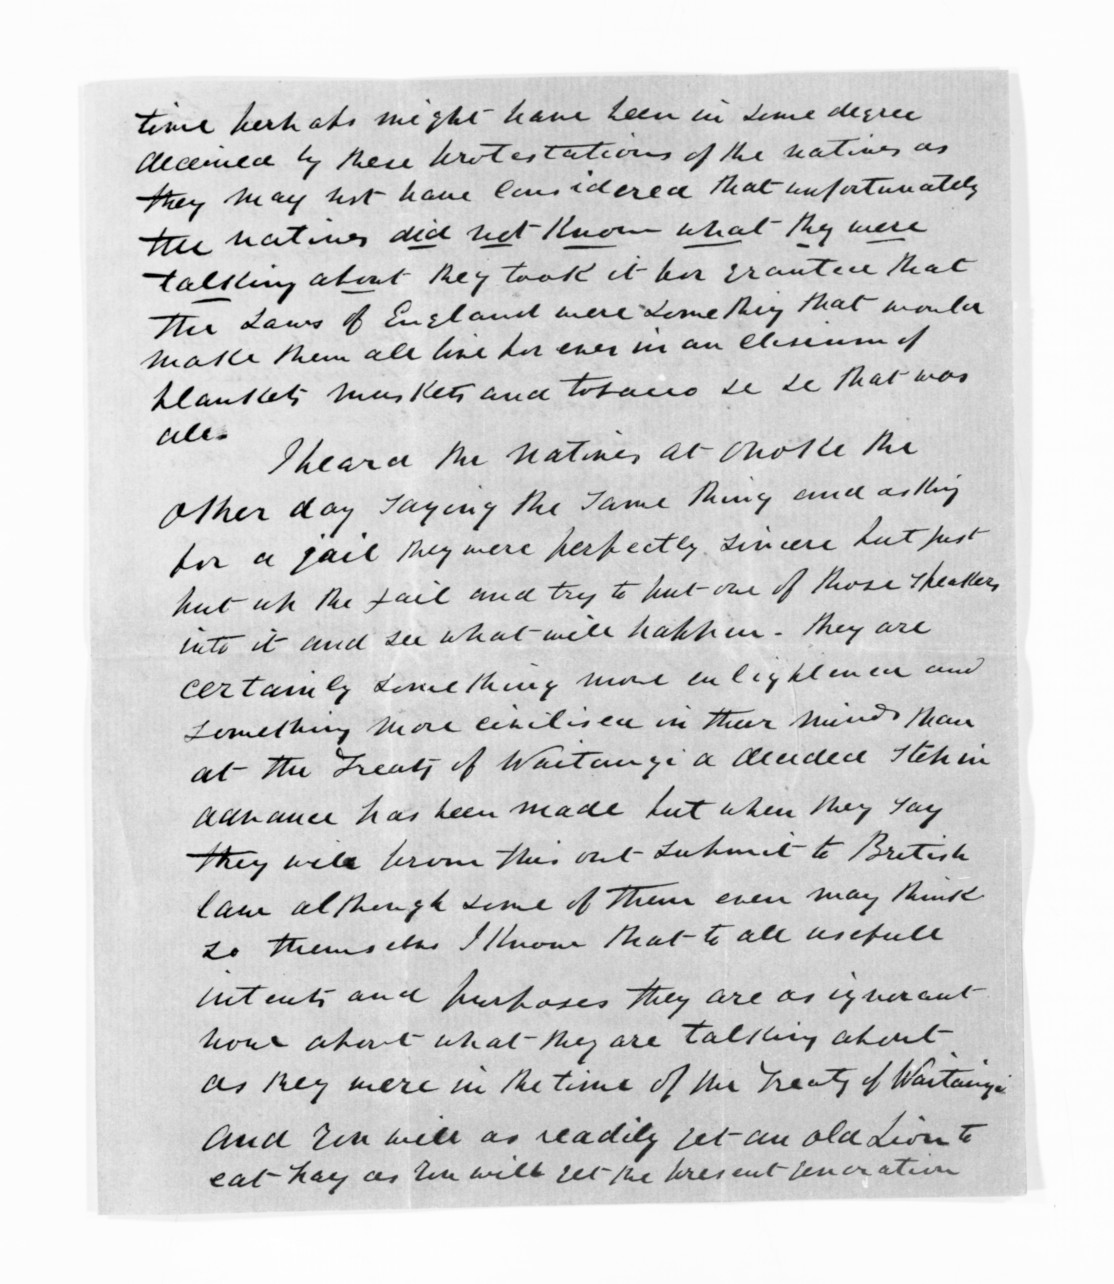 time perhaps might have been in some degree
deceived by these protestations of the natives as
they may not have considered that unfortunately
the natives did not know what they were
talking about they took it for granted that
the Laws of England were something that would
make them all live for ever in an Elisium of
blankets muskets and tobacco &c &c that was
all.
I heard the natives at Onoke the
other day saying the same thing and asking
for a jail they were perfectly sincere but just
put up the jail and try to put one of those speakers
into it and see what will happen - they are
certainly something more enlightened and
something more civilised in their minds than
at the Treaty of Waitangi a decided step in
advance has been made but when they say
they will from this out submit to British
law although some of them even may think
so themselves I know that to all usefull
intents and purposes they are as ignorant
now about what they are talking about
as they were in the time of the Treaty of Waitangi
and you will as readily get an old Lion to
eat hay as you will get the present generation